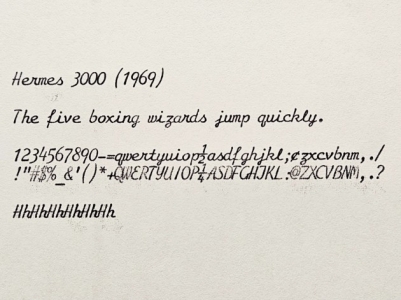 Hermes 3000 (1969)
The five boxing wizards jump quickly.
1234567890-=qwertyuiop½asdfghjkl;¢zxcvbnm,./
!"#$%_&'()*+QWERTYUIOP¼ASDFGHJKL:@ZXCVBNM,.?
HhHhHhHhHhHh